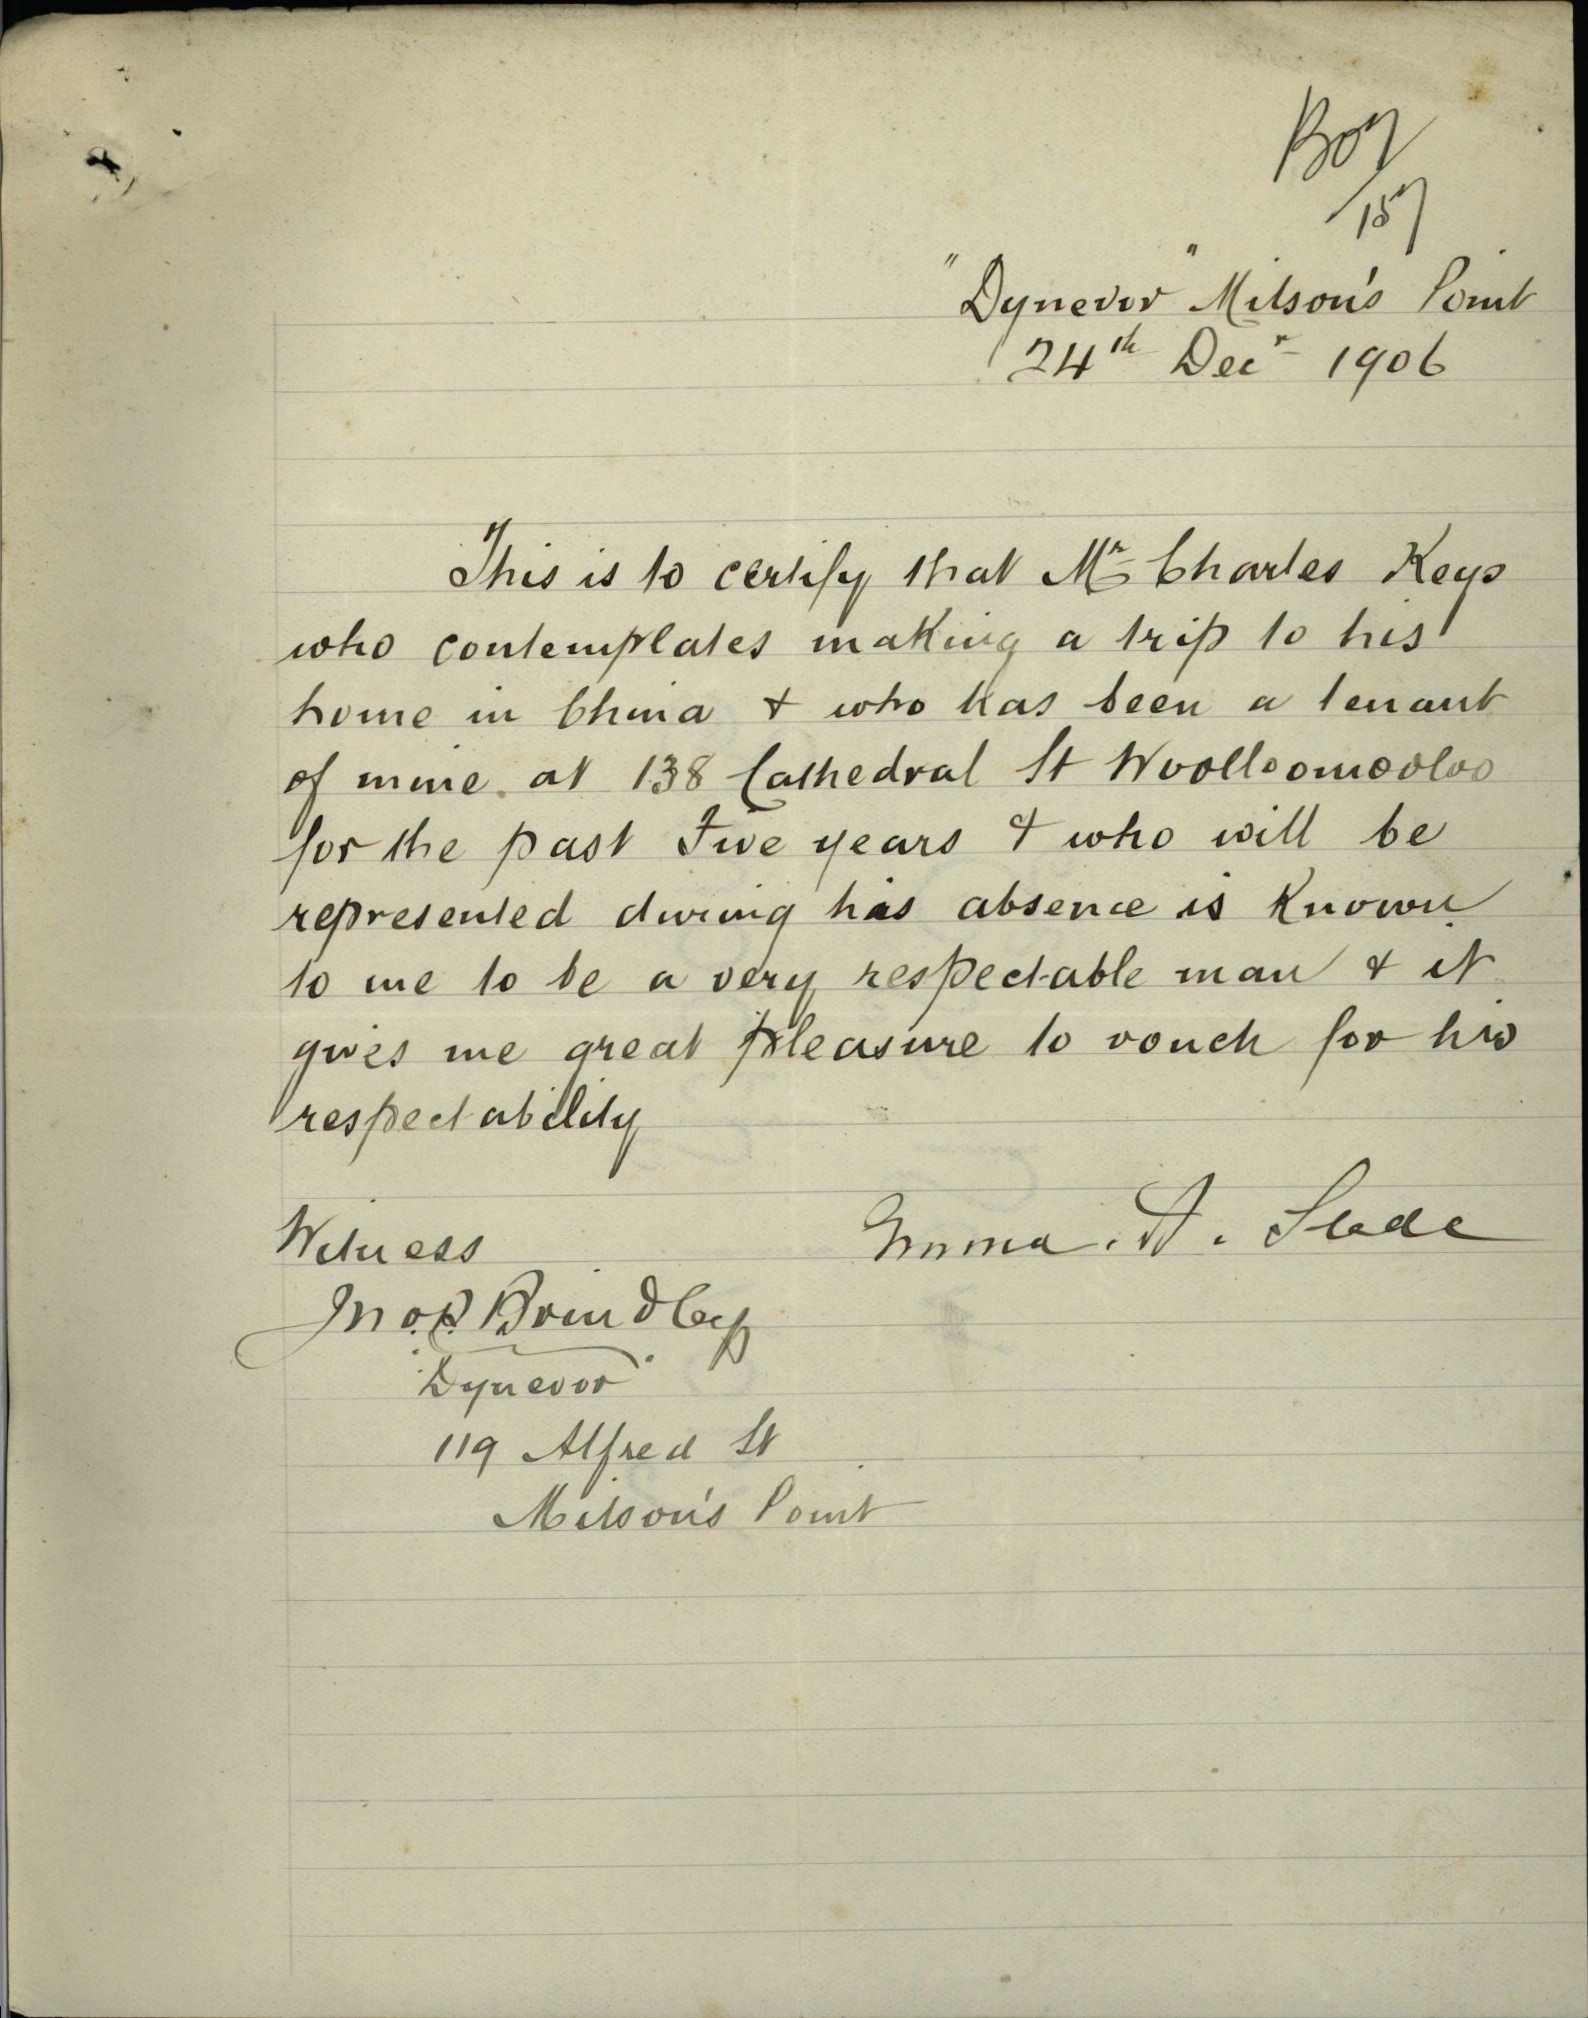 Boy
157
"Dynevor" Milson's Point
24th Decr 1906
This is to certify that Mr Charles Keys
who contemplates making a trip to his
home in China & who has been a tenant
of mine at 138 Cathedral St Woolloomooloo
for the past Five years & who will be
represented during his absence is known
to me to be a very respectable man & it
gives me great pleasure to vouch for his
respectability
Emma. A. Slade
Witness
Jno. P. Brindley
"Dynevor"
119 Alfred St
Milson's Point